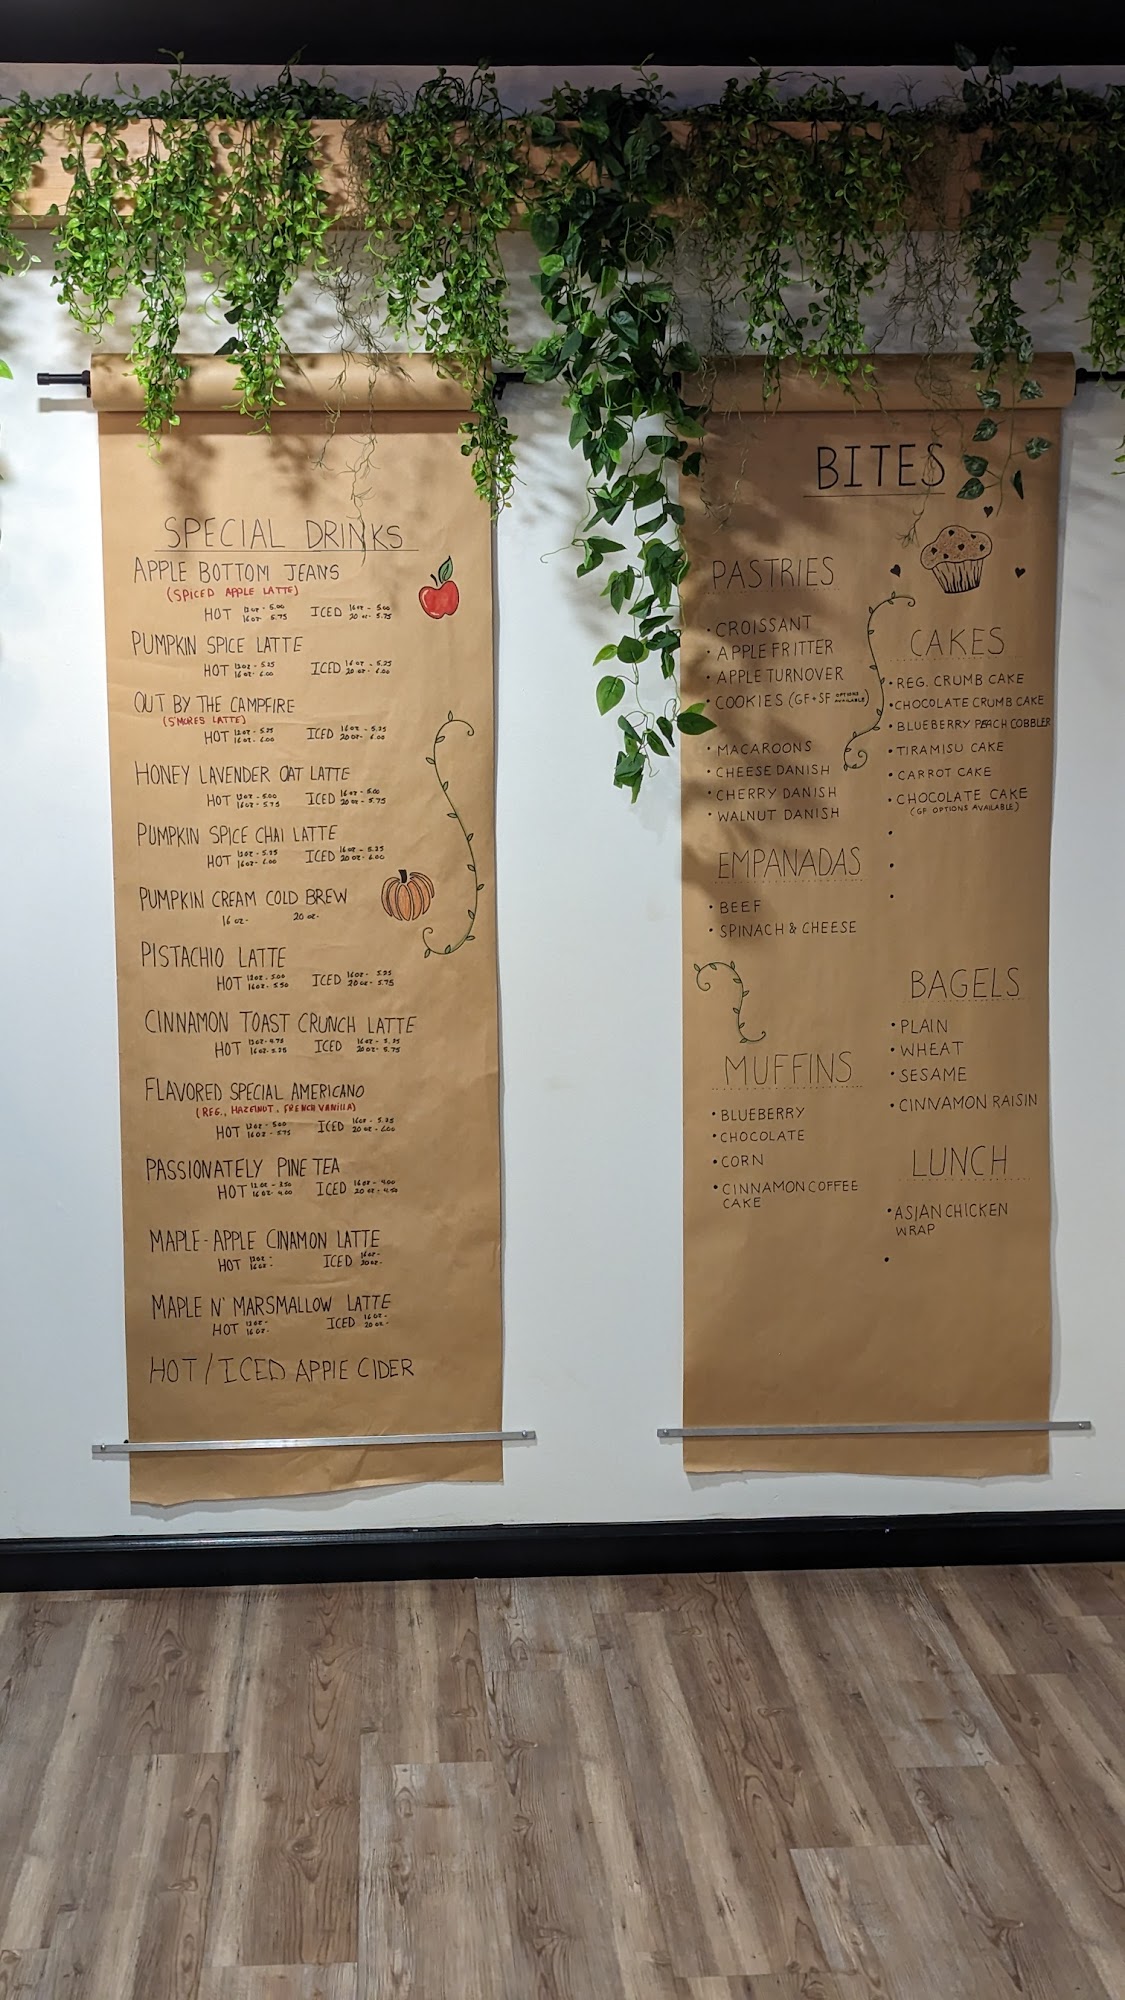 SPECIAL DRINKS
APPLE BOTTOM JEANS
(SPICED APPLE LATTE)
HOT 12oz - 5.00 ICED 16oz - 5.00
16oz - 5.75 20oz - 5.75
PUMPKIN SPICE LATTE
HOT 12oz - 5.25 ICED 16oz - 5.25
16oz - 6.00 20oz - 6.00
OUT BY THE CAMPFIRE
(S'MORES LATTE)
HOT 12oz - 5.25 ICED 16oz - 5.25
16oz - 6.00 20oz - 6.00
HONEY LAVENDER OAT LATTE
HOT 12oz - 5.00 ICED 16oz - 5.00
16oz - 5.75 20oz - 5.75
PUMPKIN SPICE CHAI LATTE
HOT 12oz - 5.25 ICED 16oz - 5.25
16oz - 6.00 20oz - 6.00
PUMPKIN CREAM COLD BREW
16 oz- 20 oz-
PISTACHIO LATTE
HOT 12oz - 5.00 ICED 16oz - 5.25
16oz - 5.50 20oz - 5.75
CINNAMON TOAST CRUNCH LATTE
HOT 12oz - 4.75 ICED 16oz - 5.25
16oz - 5.25 20oz - 5.75
FLAVORED SPECIAL AMERICANO
(REG., HAZELNUT, FRENCH VANILLA)
HOT 12oz - 5.00 ICED 16oz - 5.25
16oz - 5.75 20oz - 6.00
PASSIONATELY PINE TEA
HOT 12oz - 3.50 ICED 16oz - 4.00
16oz - 4.00 20oz - 4.50
MAPLE-APPLE CINAMON LATTE
HOT 12oz- ICED 16oz-
16oz- 20oz-
MAPLE N' MARSMALLOW LATTE
HOT 12oz- ICED 16oz-
16oz- 20oz-
HOT/ICED APPLE CIDER
BITES
PASTRIES
• CROISSANT
• APPLE FRITTER
• APPLE TURNOVER
• COOKIES (GF+SF OPTIONS AVAILABLE)
• MACAROONS
• CHEESE DANISH
• CHERRY DANISH
• WALNUT DANISH
EMPANADAS
• BEEF
• SPINACH & CHEESE
MUFFINS
• BLUEBERRY
• CHOCOLATE
• CORN
• CINNAMON COFFEE
CAKE
CAKES
• REG. CRUMB CAKE
• CHOCOLATE CRUMB CAKE
• BLUEBERRY PEACH COBBLER
• TIRAMISU CAKE
• CARROT CAKE
• CHOCOLATE CAKE
(GF OPTIONS AVAILABLE)
BAGELS
• PLAIN
• WHEAT
• SESAME
• CINNAMON RAISIN
LUNCH
• ASIAN CHICKEN
WRAP